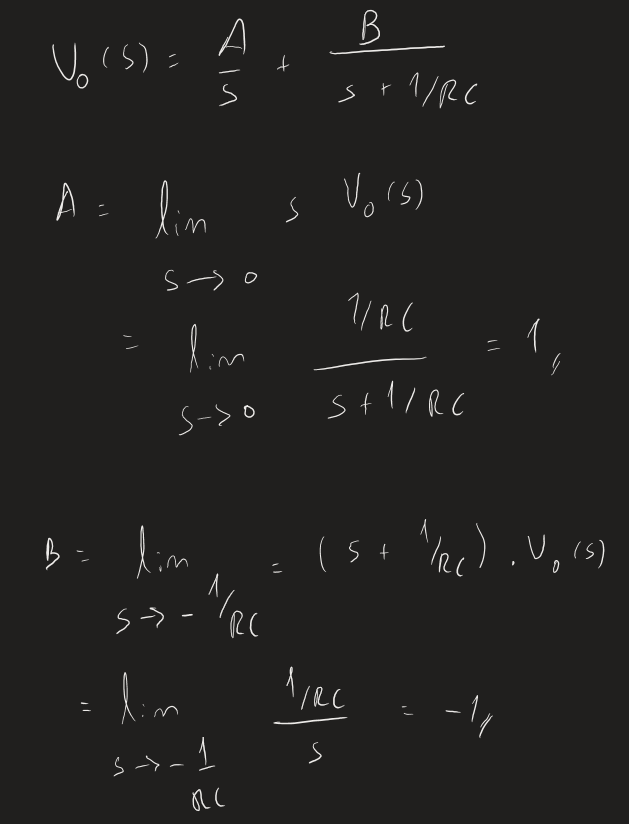 V₀(s) = A/s + B/(s + 1/RC)
A = lim s→0 s V₀(s)
= lim s→0 (1/RC)/(s + 1/RC) = 1,,
B = lim s→-1/RC = (s + 1/RC) . V₀(s)
= lim s→-1/RC (1/RC)/s = -1,,